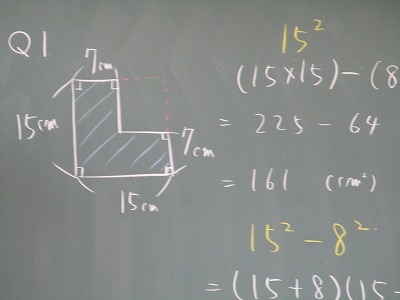 Q1
7cm
15cm
7cm
15cm
15²
(15×15)-(8
= 225 - 64
= 161 (cm²)
15² - 8²
=(15+8)(15-